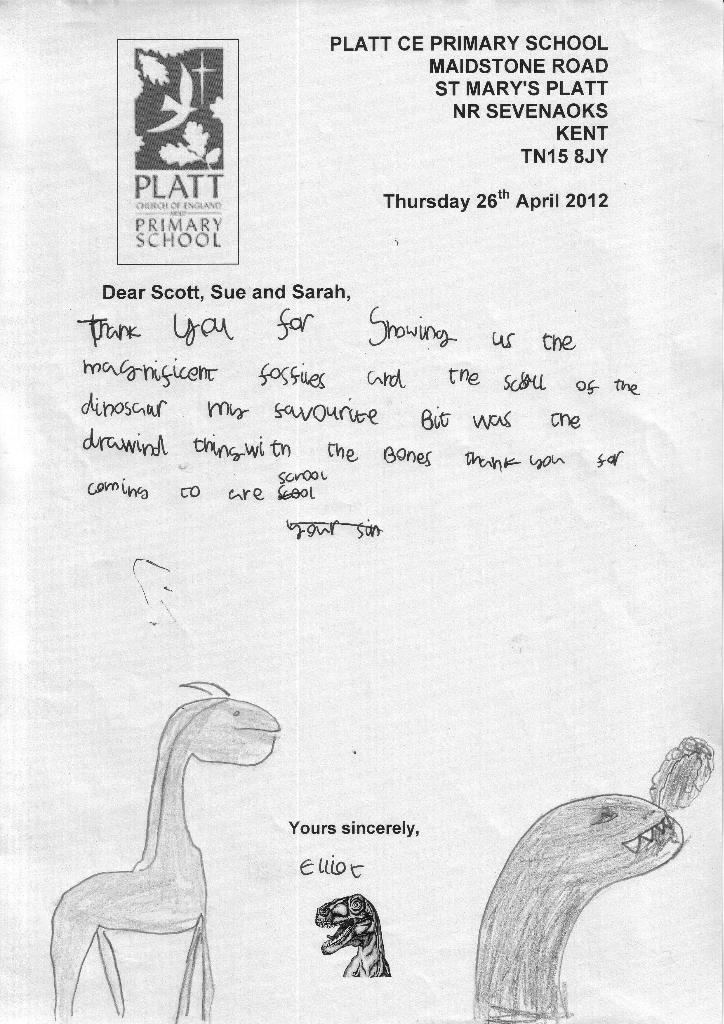 PLATT CE PRIMARY SCHOOL
MAIDSTONE ROAD
ST MARY'S PLATT
NR SEVENAOKS
KENT
TN15 8JY
Thursday 26th April 2012
PLATT
CHURCH OF ENGLAND
PRIMARY
SCHOOL
Dear Scott, Sue and Sarah,
Thank you for Showing us the
magnificent fossues and the scull of the
dinosaur my favourite Bit was the
drawind thing with the Bones thank you for
coming to are school
your sin
Yours sincerely,
Elliot